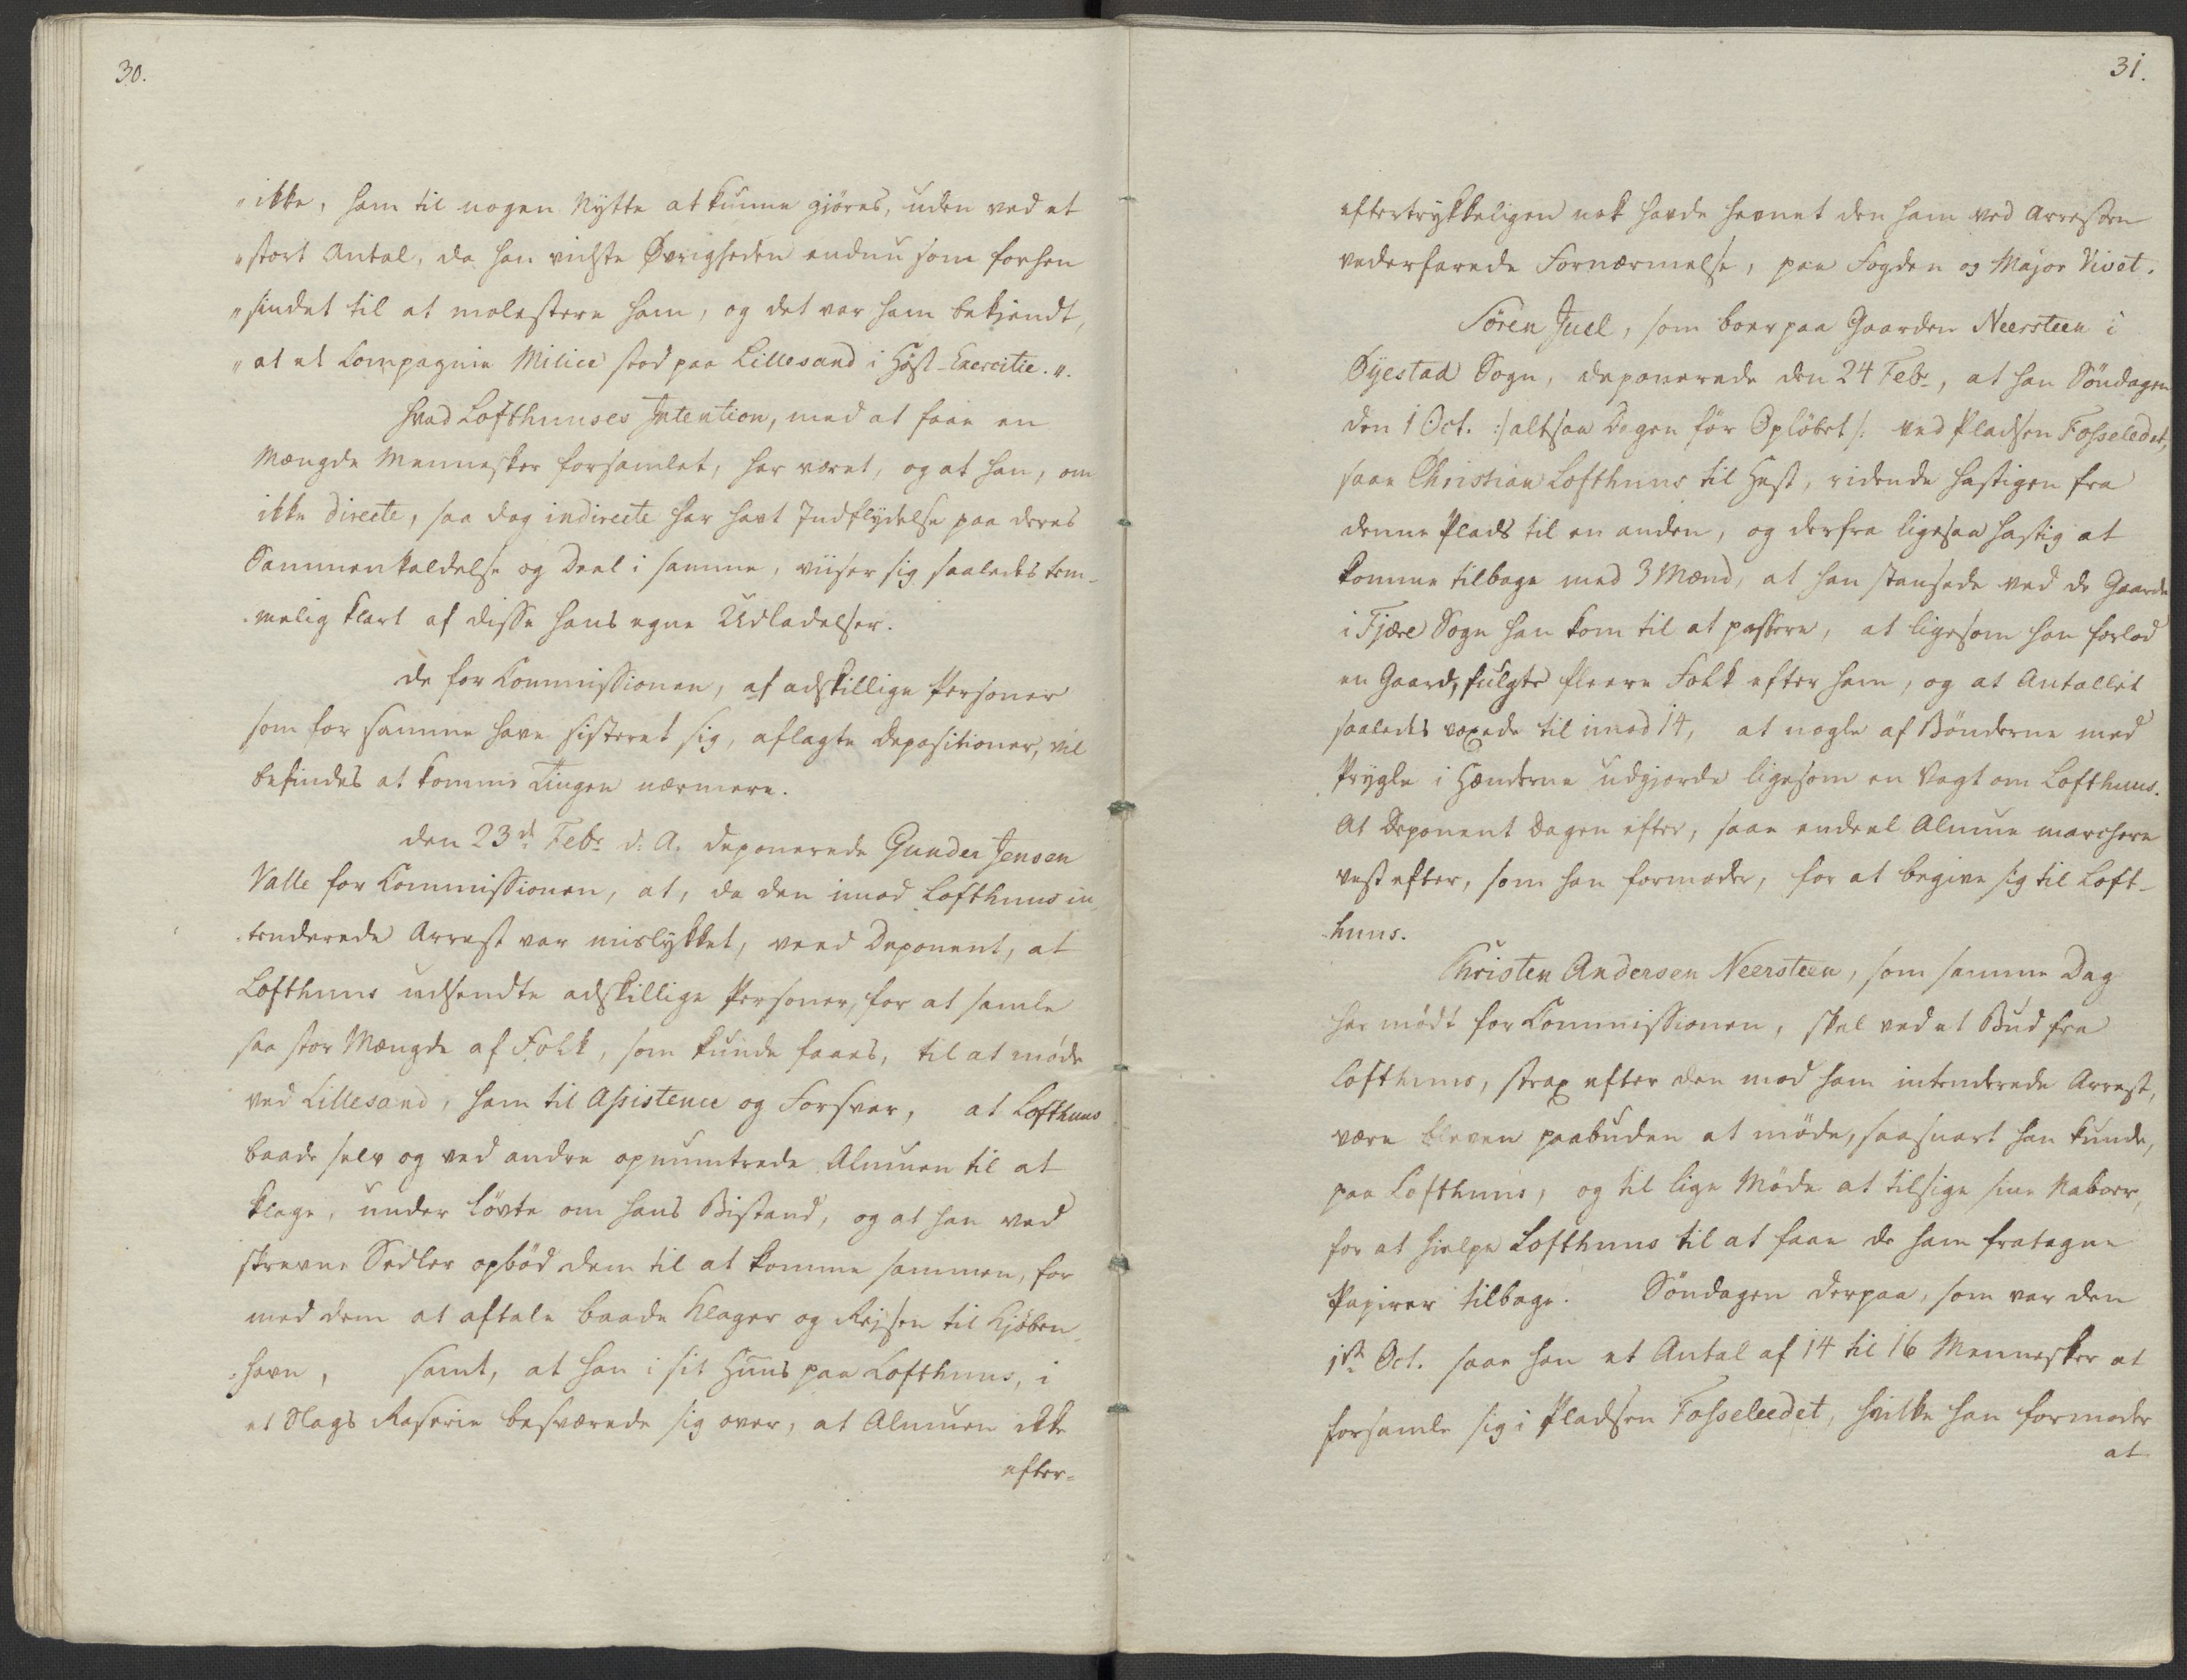 30.
"ikke, ham til nogen Nytte at kunne gjøres, uden ved et
"stort Antal, da han vidste Øvrigheden endnu som forhen
"sindet til at molestere ham, og det var ham bekjendt,
"at et Compagnie Milice stod paa Lillesand i Høst-Exercitie.".
Hvad Lofthuuses Intention, med at faae en
Mængde Mennesker forsamlet, har været, og at han, om
ikke directe, saa dog indirecte har havt Indflydelse paa deres
Sammenkaldelse og Deel i samme, viiser sig saaledes tem-
melig klart af disse hans egne Udladelser.
De for Commissionen, af adskillige Personer
som for samme have sisteret sig, aflagte Depositioner, vil
befindes at komme Tingen nærmere.
Den 23de Febr. d: A. deponerede Gunder Jensen
Valle for Commissionen, at, da den imod Lofthuus in-
tenderede Arrest var mislykket, veed Deponent, at
Lofthuus udsendte adskillige Personer, for at samle
saa stor Mængde af Folk, som kunde faaes, til at møde
ved Lillesand, ham til Assistence og Forsvar, at Lofthuus
baade selv og ved andre opmuntrede Almuen til at
klage, under Løvte om hans Bistand, og at han ved
skrevne Sedler opbød dem til at komme sammen, for
med dem at aftale baade Klager og Rejsen til Kjøben-
havn, samt, at han i sit Huus paa Lofthuus, i
et Slags Raserie besværede sig over, at Almuen ikke
efter-
31.
eftertrykkeligen nok havde hevnet den ham ved Arresten
vederfarede Fornærmelse, paa Fogden og Major Vivet.
Søren Juel, som boer paa Gaarden Neersteen i
Øyestad Sogn, deponerede den 24 Febr., at han Søndagen
den 1 Oct. :/ altsaa Dagen før Opløbet /: ved Pladsen Fosseledet,
saae Christian Lofthuus til Hest, ridende hastigen fra
denne Plads til en anden, og derfra ligesaa hastig at
komme tilbage med 3 Mænd, at han standsede ved de Gaarde
i Fjære Sogn han kom til at passere, at ligesom han forlod
en Gaard, fulgte fleere Folk efter ham, og at Antallet
saaledes voxede til imod 14, at nogle af Bønderne med
Prygle i Hænderne udgjorde ligesom en Vagt om Lofthuus.
At Deponent Dagen efter, saae endeel Almue marchere
vest efter, som han formoder, for at begive sig til Loft-
huus.
Christen Andersen Neersteen, som samme Dag
har mødt for Commissionen, skal ved et Bud fra
Lofthuus, strax efter den mod ham intenderede Arrest,
være bleven paabuden at møde, saasnart han kunde,
paa Lofthuus, og til lige Møde at tilsige sine Naboer,
for at hielpe Lofthuus til at faae de ham fratagne
Papirer tilbage. Søndagen derpaa, som var den
1ste Oct. saae han et Antal af 14 til 16 Mennesker at
forsamle sig i Pladsen Fosseleedet, hvilke han formoder
at